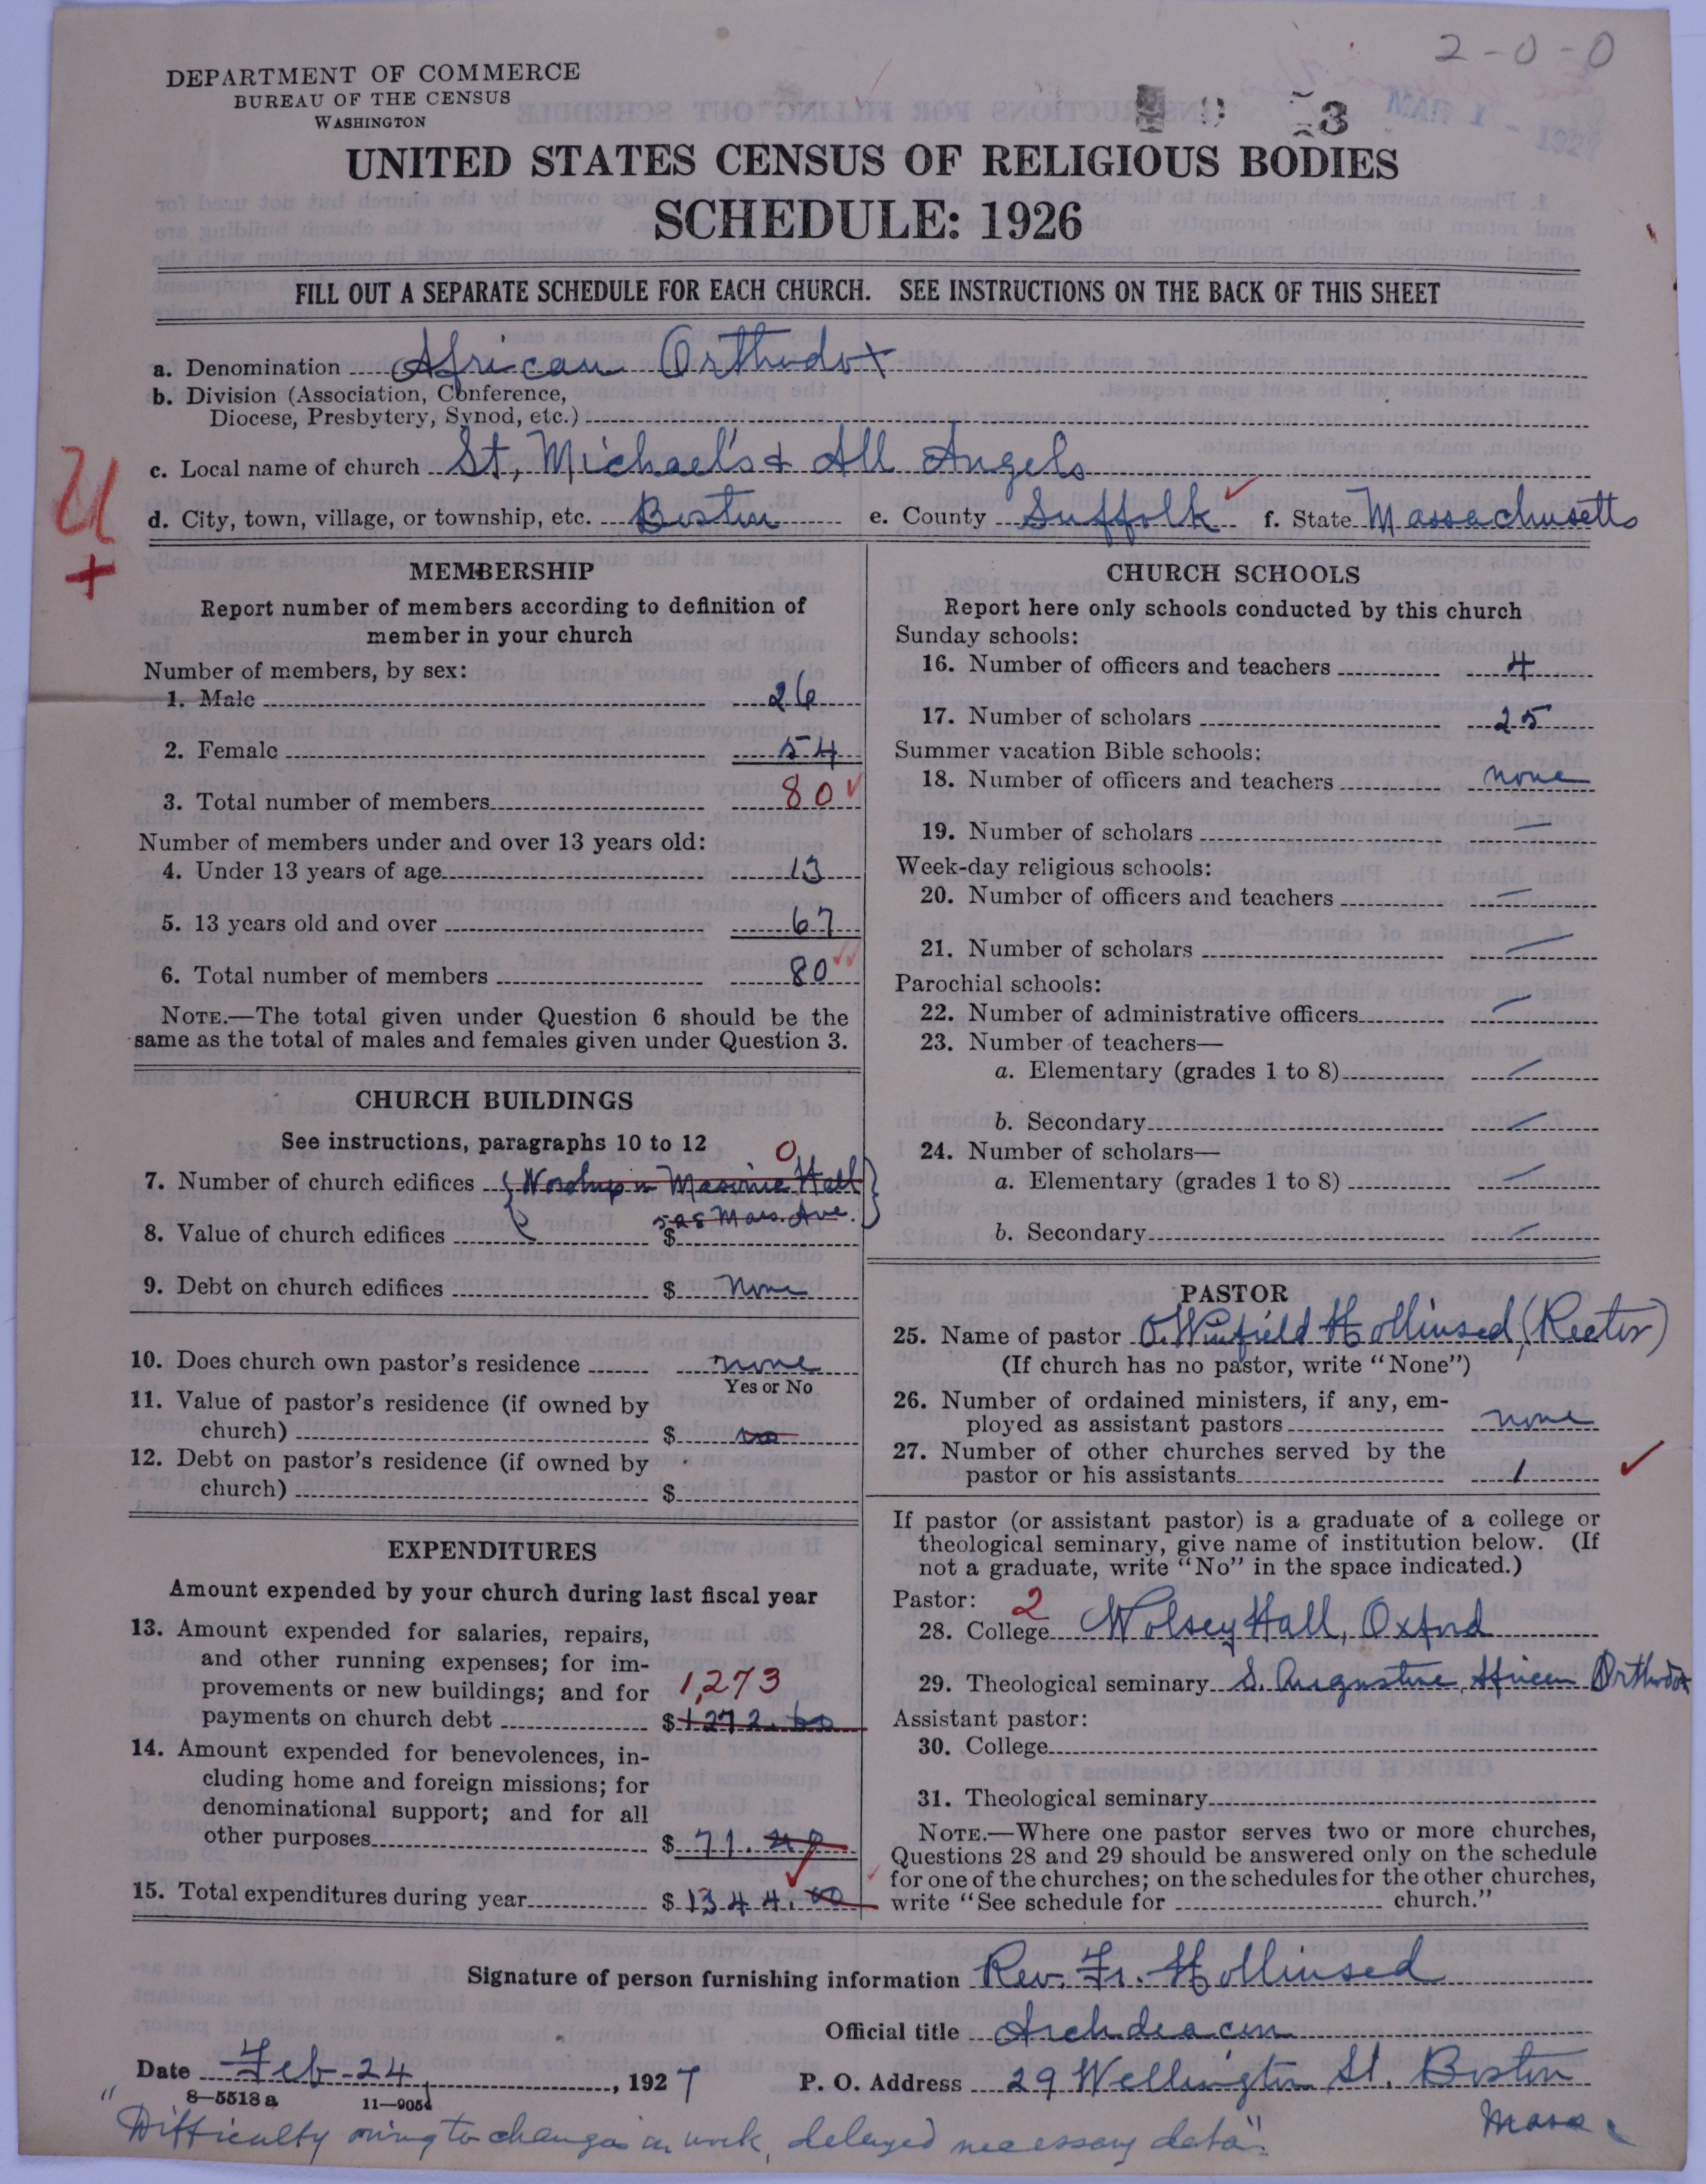 2-0-0
DEPARTMENT OF COMMERCE
BUREAU OF THE CENSUS
WASHINGTON
3
MAR 1 - 1927
UNITED STATES CENSUS OF RELIGIOUS BODIES
SCHEDULE: 1926
FILL OUT A SEPARATE SCHEDULE FOR EACH CHURCH. SEE INSTRUCTIONS ON THE BACK OF THIS SHEET
a. Denomination African Orthodox
b. Division (Association, Conference,
Diocese, Presbytery, Synod, etc.)
c. Local name of church St. Michael's & All Angels
d. City, town, village, or township, etc. Boston e. County Suffolk f. State Massachusetts
U
+
MEMBERSHIP
Report number of members according to definition of
member in your church
Number of members, by sex:
1. Male 26
2. Female 54
3. Total number of members 80
Number of members under and over 13 years old:
4. Under 13 years of age 13
5. 13 years old and over 67
6. Total number of members 80
NOTE.—The total given under Question 6 should be the
same as the total of males and females given under Question 3.
CHURCH BUILDINGS
See instructions, paragraphs 10 to 12
0
7. Number of church edifices Worship in Masonic Hall
528 Mass. Ave.
8. Value of church edifices $
9. Debt on church edifices $ None
10. Does church own pastor's residence none
Yes or No
11. Value of pastor's residence (if owned by
church) $ no
12. Debt on pastor's residence (if owned by
church) $
EXPENDITURES
Amount expended by your church during last fiscal year
13. Amount expended for salaries, repairs,
and other running expenses; for im-
provements or new buildings; and for 1,273
payments on church debt $ 1272.60
14. Amount expended for benevolences, in-
cluding home and foreign missions; for
denominational support; and for all
other purposes $ 71.
15. Total expenditures during year $ 1344.00
CHURCH SCHOOLS
Report here only schools conducted by this church
Sunday schools:
16. Number of officers and teachers 4
17. Number of scholars 25
Summer vacation Bible schools:
18. Number of officers and teachers none
19. Number of scholars —
Week-day religious schools:
20. Number of officers and teachers —
21. Number of scholars —
Parochial schools:
22. Number of administrative officers —
23. Number of teachers—
a. Elementary (grades 1 to 8) —
b. Secondary —
24. Number of scholars—
a. Elementary (grades 1 to 8) —
b. Secondary —
PASTOR
25. Name of pastor O. Winfield Hollinsed, (Rector)
(If church has no pastor, write "None")
26. Number of ordained ministers, if any, em-
ployed as assistant pastors none
27. Number of other churches served by the
pastor or his assistants 1
If pastor (or assistant pastor) is a graduate of a college or
theological seminary, give name of institution below. (If
not a graduate, write "No" in the space indicated.)
Pastor: 2
28. College Wolsey Hall, Oxford
29. Theological seminary S. Augustine, African Orthodox
Assistant pastor:
30. College
31. Theological seminary
NOTE.—Where one pastor serves two or more churches,
Questions 28 and 29 should be answered only on the schedule
for one of the churches; on the schedules for the other churches,
write "See schedule for church."
Signature of person furnishing information Rev. Fr. Hollinsed
Official title Archdeacon
Date Feb-24, 1927 P. O. Address 29 Wellington St. Boston
Mass.
8—5518 a 11—9054
"Difficulty owing to changes in work, delayed necessary data".